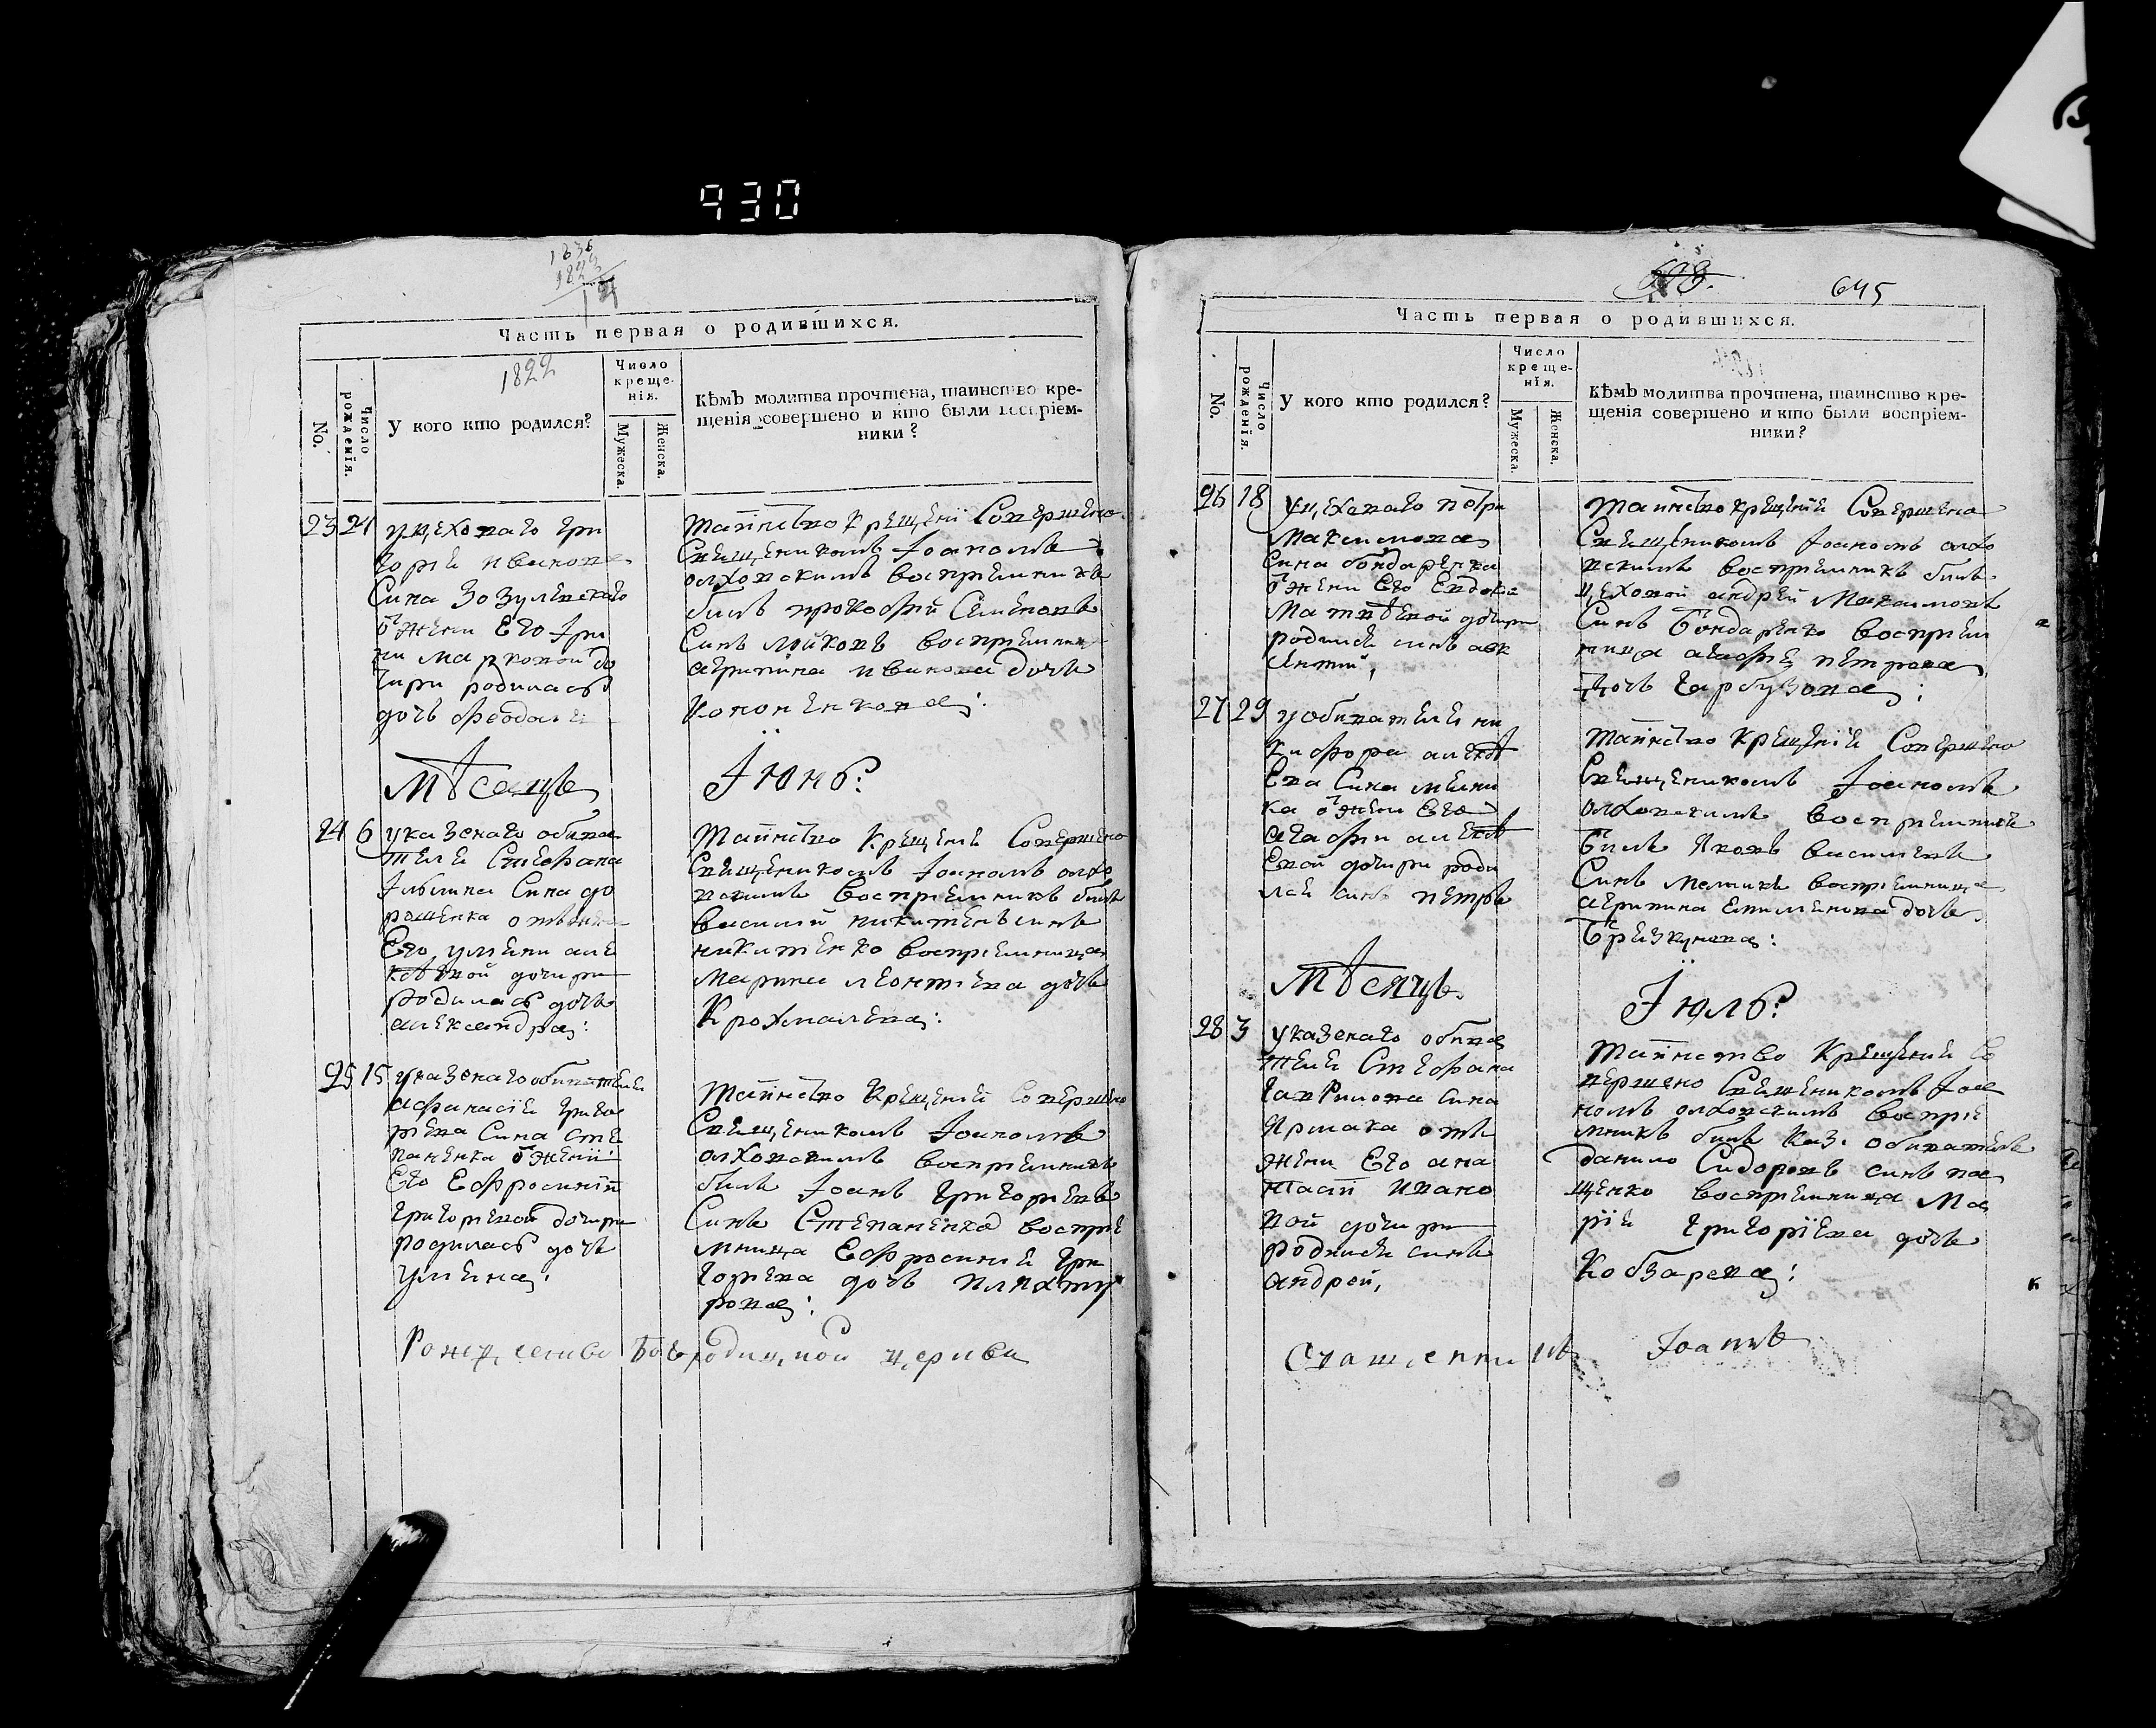 930
1836
1823
Часть первая о родившихся.
No.
Число рожденія.
1822
У кого кто родился?
Число
креще-
нія.
Мужеска.
Женска.
Кѣмъ молитва прочтена, таинство кре-
щенія совершено и кто были воспріем-
ники?
23 21
уцеховаго гри
горія иванова
Сина Зозулевскаго
отжени Его Іри
ни марковой до
чири родилась
дочь феодосія
Таинство крещенії Совершено
Священикомъ Іоаномъ
олховскимъ воспріемникъ
билъ прокофій Семеновъ
Синъ Мойковъ воспріемни
агрипина иванова дочь
Кононенкова:
Мѣсяцъ
Іюнь:
24 6
указенаго обива
теля Стефана
Ильина Сина до
рошенка отжени
Его уляни але
ковной дочири
родилась дочь
александра:
Таинство Крещеніе Совершено
Священикомъ Іоаномъ олхо
вскимъ воспріемникъ билъ
василій никитенъ синъ
никитенко воспріемница
Марина леонтіева дочь
Крохмалева:
25 15
указенаго обивателя
афанасія григо
ріева Сина сте
паненка отженії
Его Ефросинії
григоріевой дочири
родилась дочь
уляна:
Таинство Крещеній Совершено
Священикомъ Іоаномъ
олховскимъ воспріемникъ
билъ Іоанъ григоріевъ
Синъ Степаненко воспріе
мница Ефросинія гри
горіева дочь пляхту
рова:
Рождество Богородичной церкви
645
Часть первая о родившихся.
No.
Число рожденія.
У кого кто родился?
Число
креще-
нія.
Мужеска.
Женска.
Кѣмъ молитва прочтена, таинство кре-
щенія совершено и кто были воспріем-
ники?
26 18
Уцеховаго петра
Максимова
Сина бондаренка
отжени Его Евдокі
Матвѣевой дочири
родился синъ авк
сентій,
Таинство крещеніе Совершено
Священикомъ Іоаномъ олхо
вскимъ воспріемникъ билъ
цеховой андрей Максимовъ
Синъ Бондаренко воспріем
ница агафія петрова
дочь гарбузова:
27 29
уобивателя ни
кифора алексѣ
Ева Сина мелни
ка отжени Его
агафіи алексѣ
Евой дочири роди
лся синъ петръ
Таинство крещеніе Совершено
Священикомъ Іоаномъ
олховскимъ воспріемникъ
Билъ Яковъ василевъ
Синъ Мелникъ воспріемница
агрипина Емилянова дочь
Брезкунова:
Мѣсяцъ
Іюль:
28 3
указенаго обива
теля Стефана
гаврилова сина
Ярмака отъ
жени Его ана
стасії ивано
вой дочири
родился синъ
андрей,
Таинство Крещеніе Со
вершено Священикомъ Іоа
номъ олховскимъ воспріе
мникъ билъ каз. обиватель
данило Сидоровъ синъ па
щенко воспріемница Ма
рія григоріева дочь
Кобзарева:
Священникъ Іоаннъ